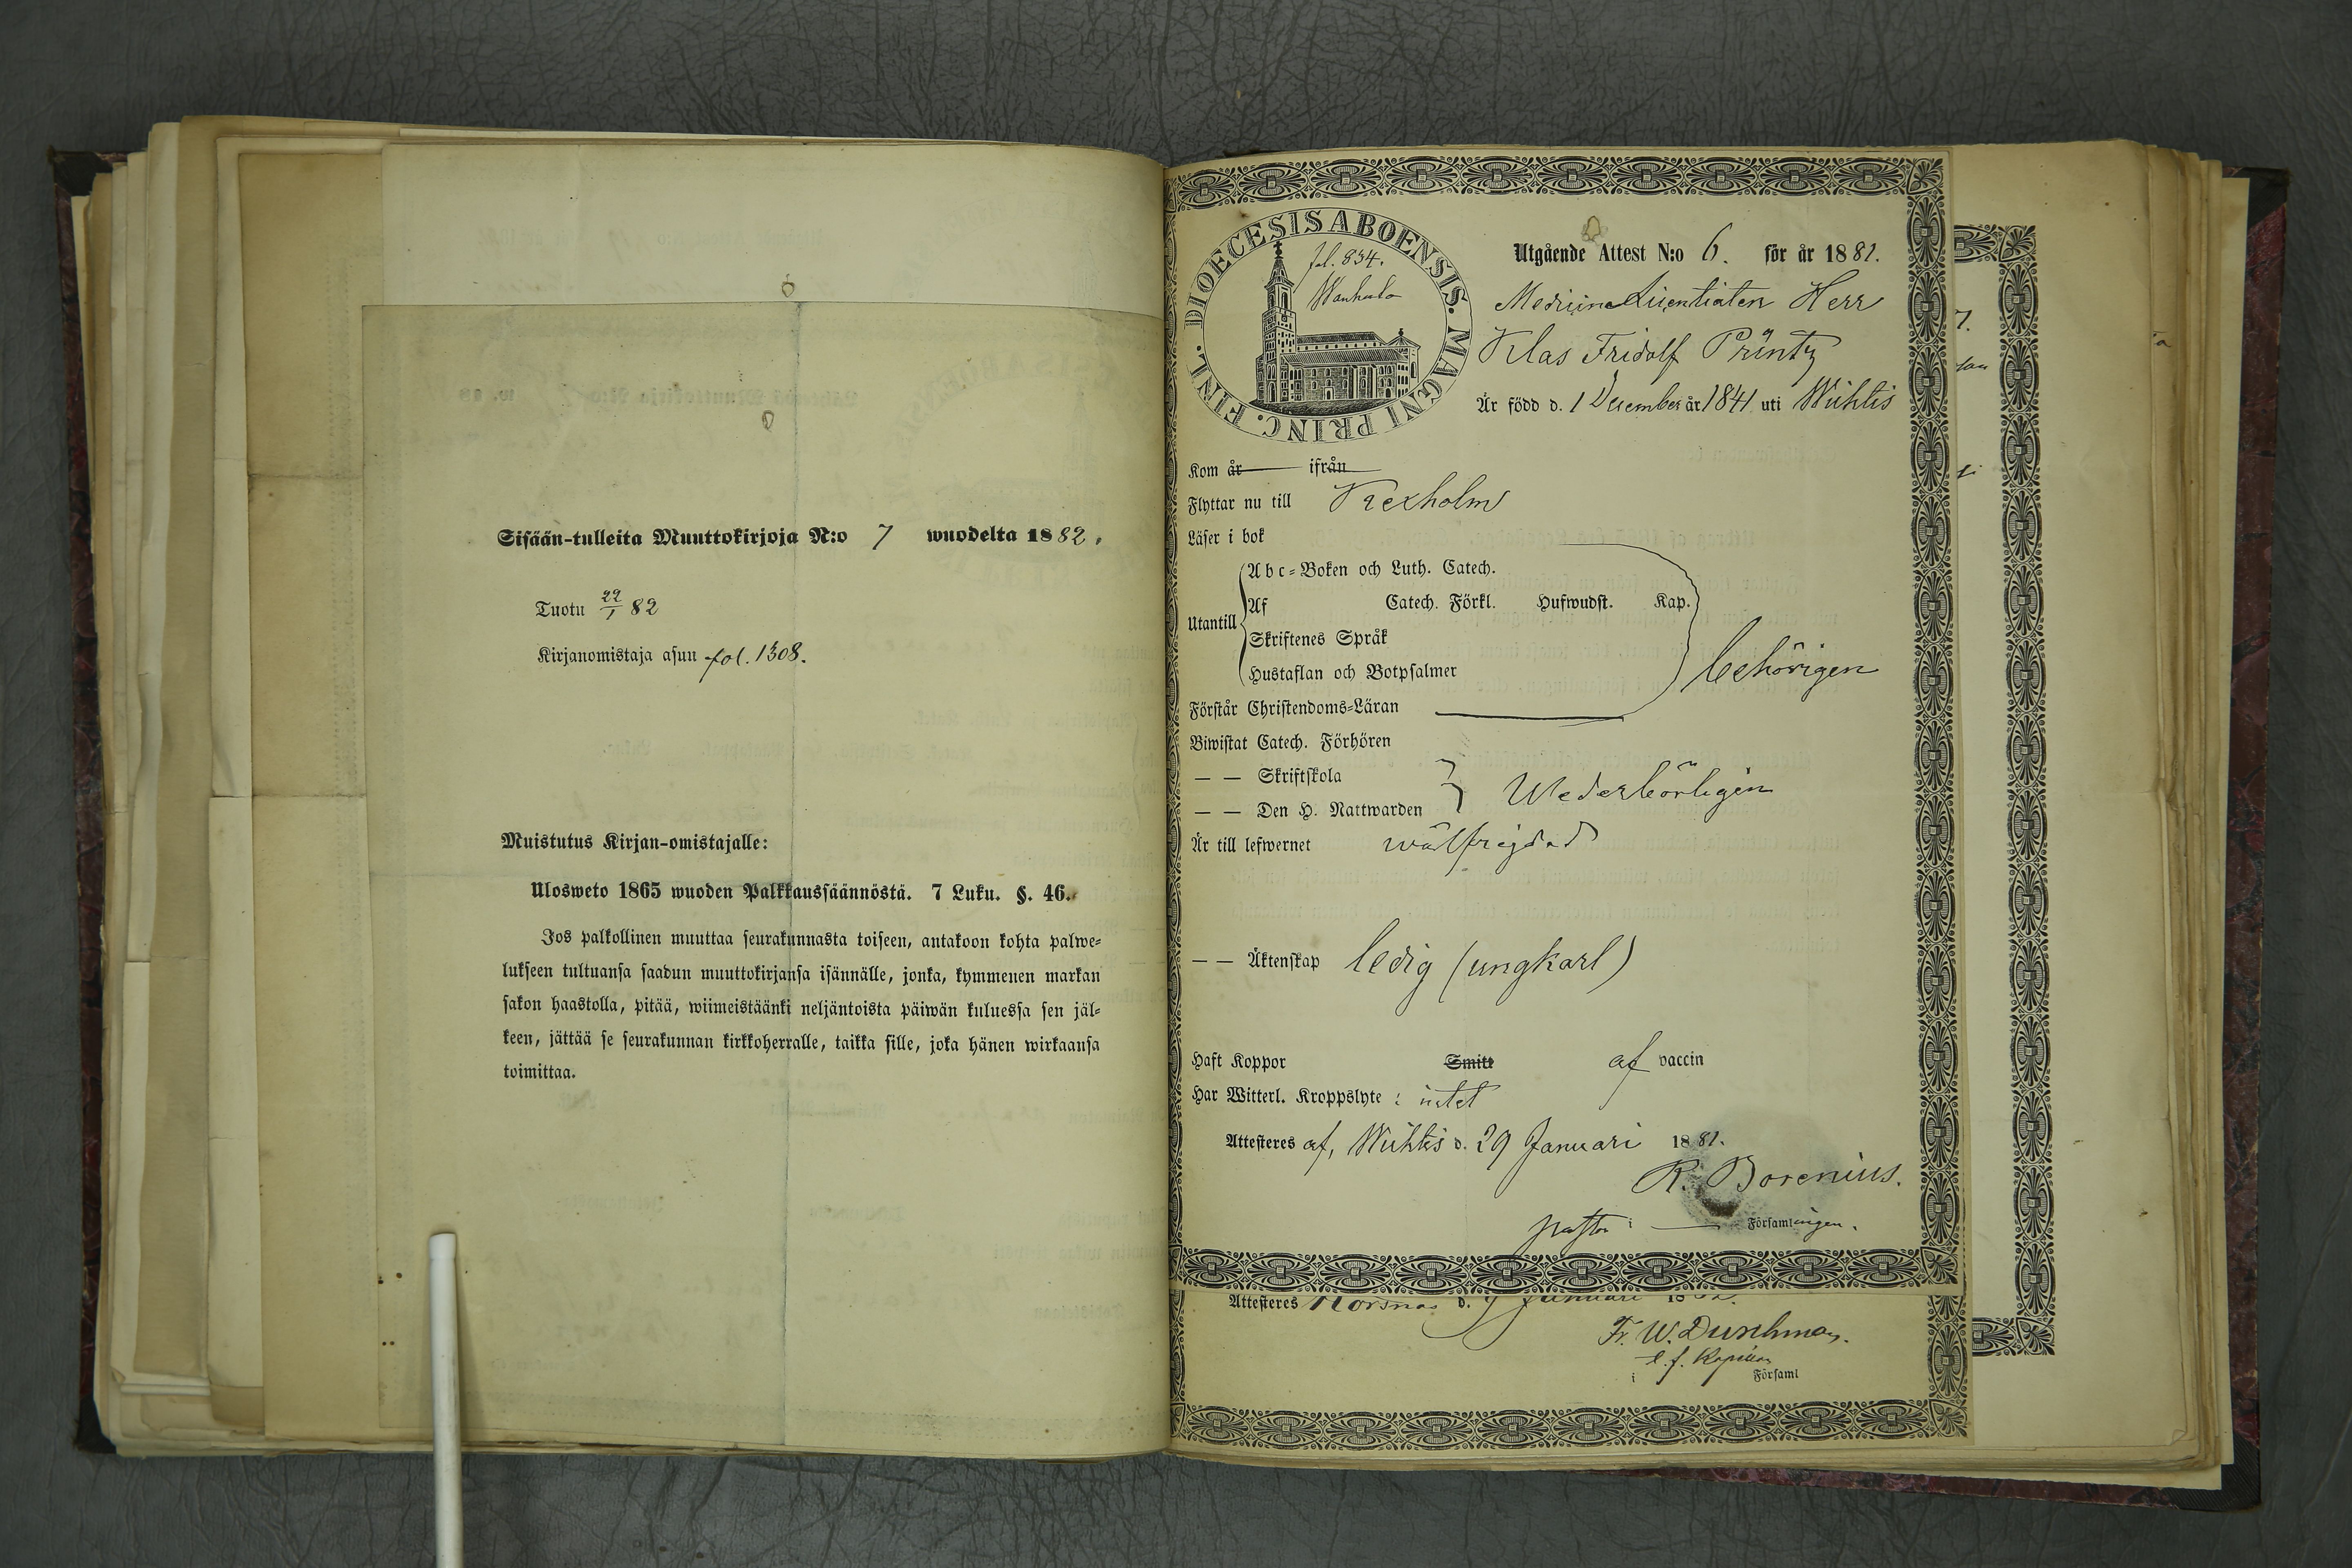 Sisään-tulleita Muuttokirjoja N:o 7 wuodelta 1882.
Tuotu 22/1 82
Kirjanomistaja asuu fol. 1308.
Muistutus Kirjan-omistajalle:
Ulosweto 1865 wuoden Palkkaussäännöstä. 7 Luku. §. 46.
Jos palkollinen muuttaa seurakunnasta toiseen, antakoon kohta palwe-
lukseen tultuansa saadun muuttokirjansa isännälle, jonka, kymmenen markan
sakon haastolla, pitää, wiimeistäänki neljäntoista päiwän kuluessa sen jäl-
keen, jättää se seurakunnan kirkkoherralle, taikka sille, joka hänen wirkaansa
toimittaa.
DIOECESIS ABOENSIS. MAGNI PRINC. FINL.
fol. 834.
Utgående Attest N:o 6. för år 1882.
Medicine Licentiaten Herr
Klas Fridolf Printz
Är född d. 1 December år 1841 uti Wichtis
Kom år ifrån
Flyttar nu till Kexholm
Läser i bok
Utantill
Abc-Boken och Luth. Catech.
Af Catech. Förkl. Hufwudst. Kap.
Skriftenes Språk
Hustaflan och Botpsalmer
behörigen
Förstår Christendoms-Läran
Biwistat Catech. Förhören
— — Skriftskola
— — Den H. Nattwarden
Wederbörligen
Är till lefwernet wälfrejdad
— — Äktenskap ledig (ungkarl)
Haft Koppor Smitt af vaccin
Har Witterl. Kroppslyte: intet
Attesteres af, Wichtis d. 29 Januari 1882.
R. Borenius.
pastor i — Församlingen.
Attesteres d. 9 Januari
Fr. W.
e. f. Kapellan
i Församl